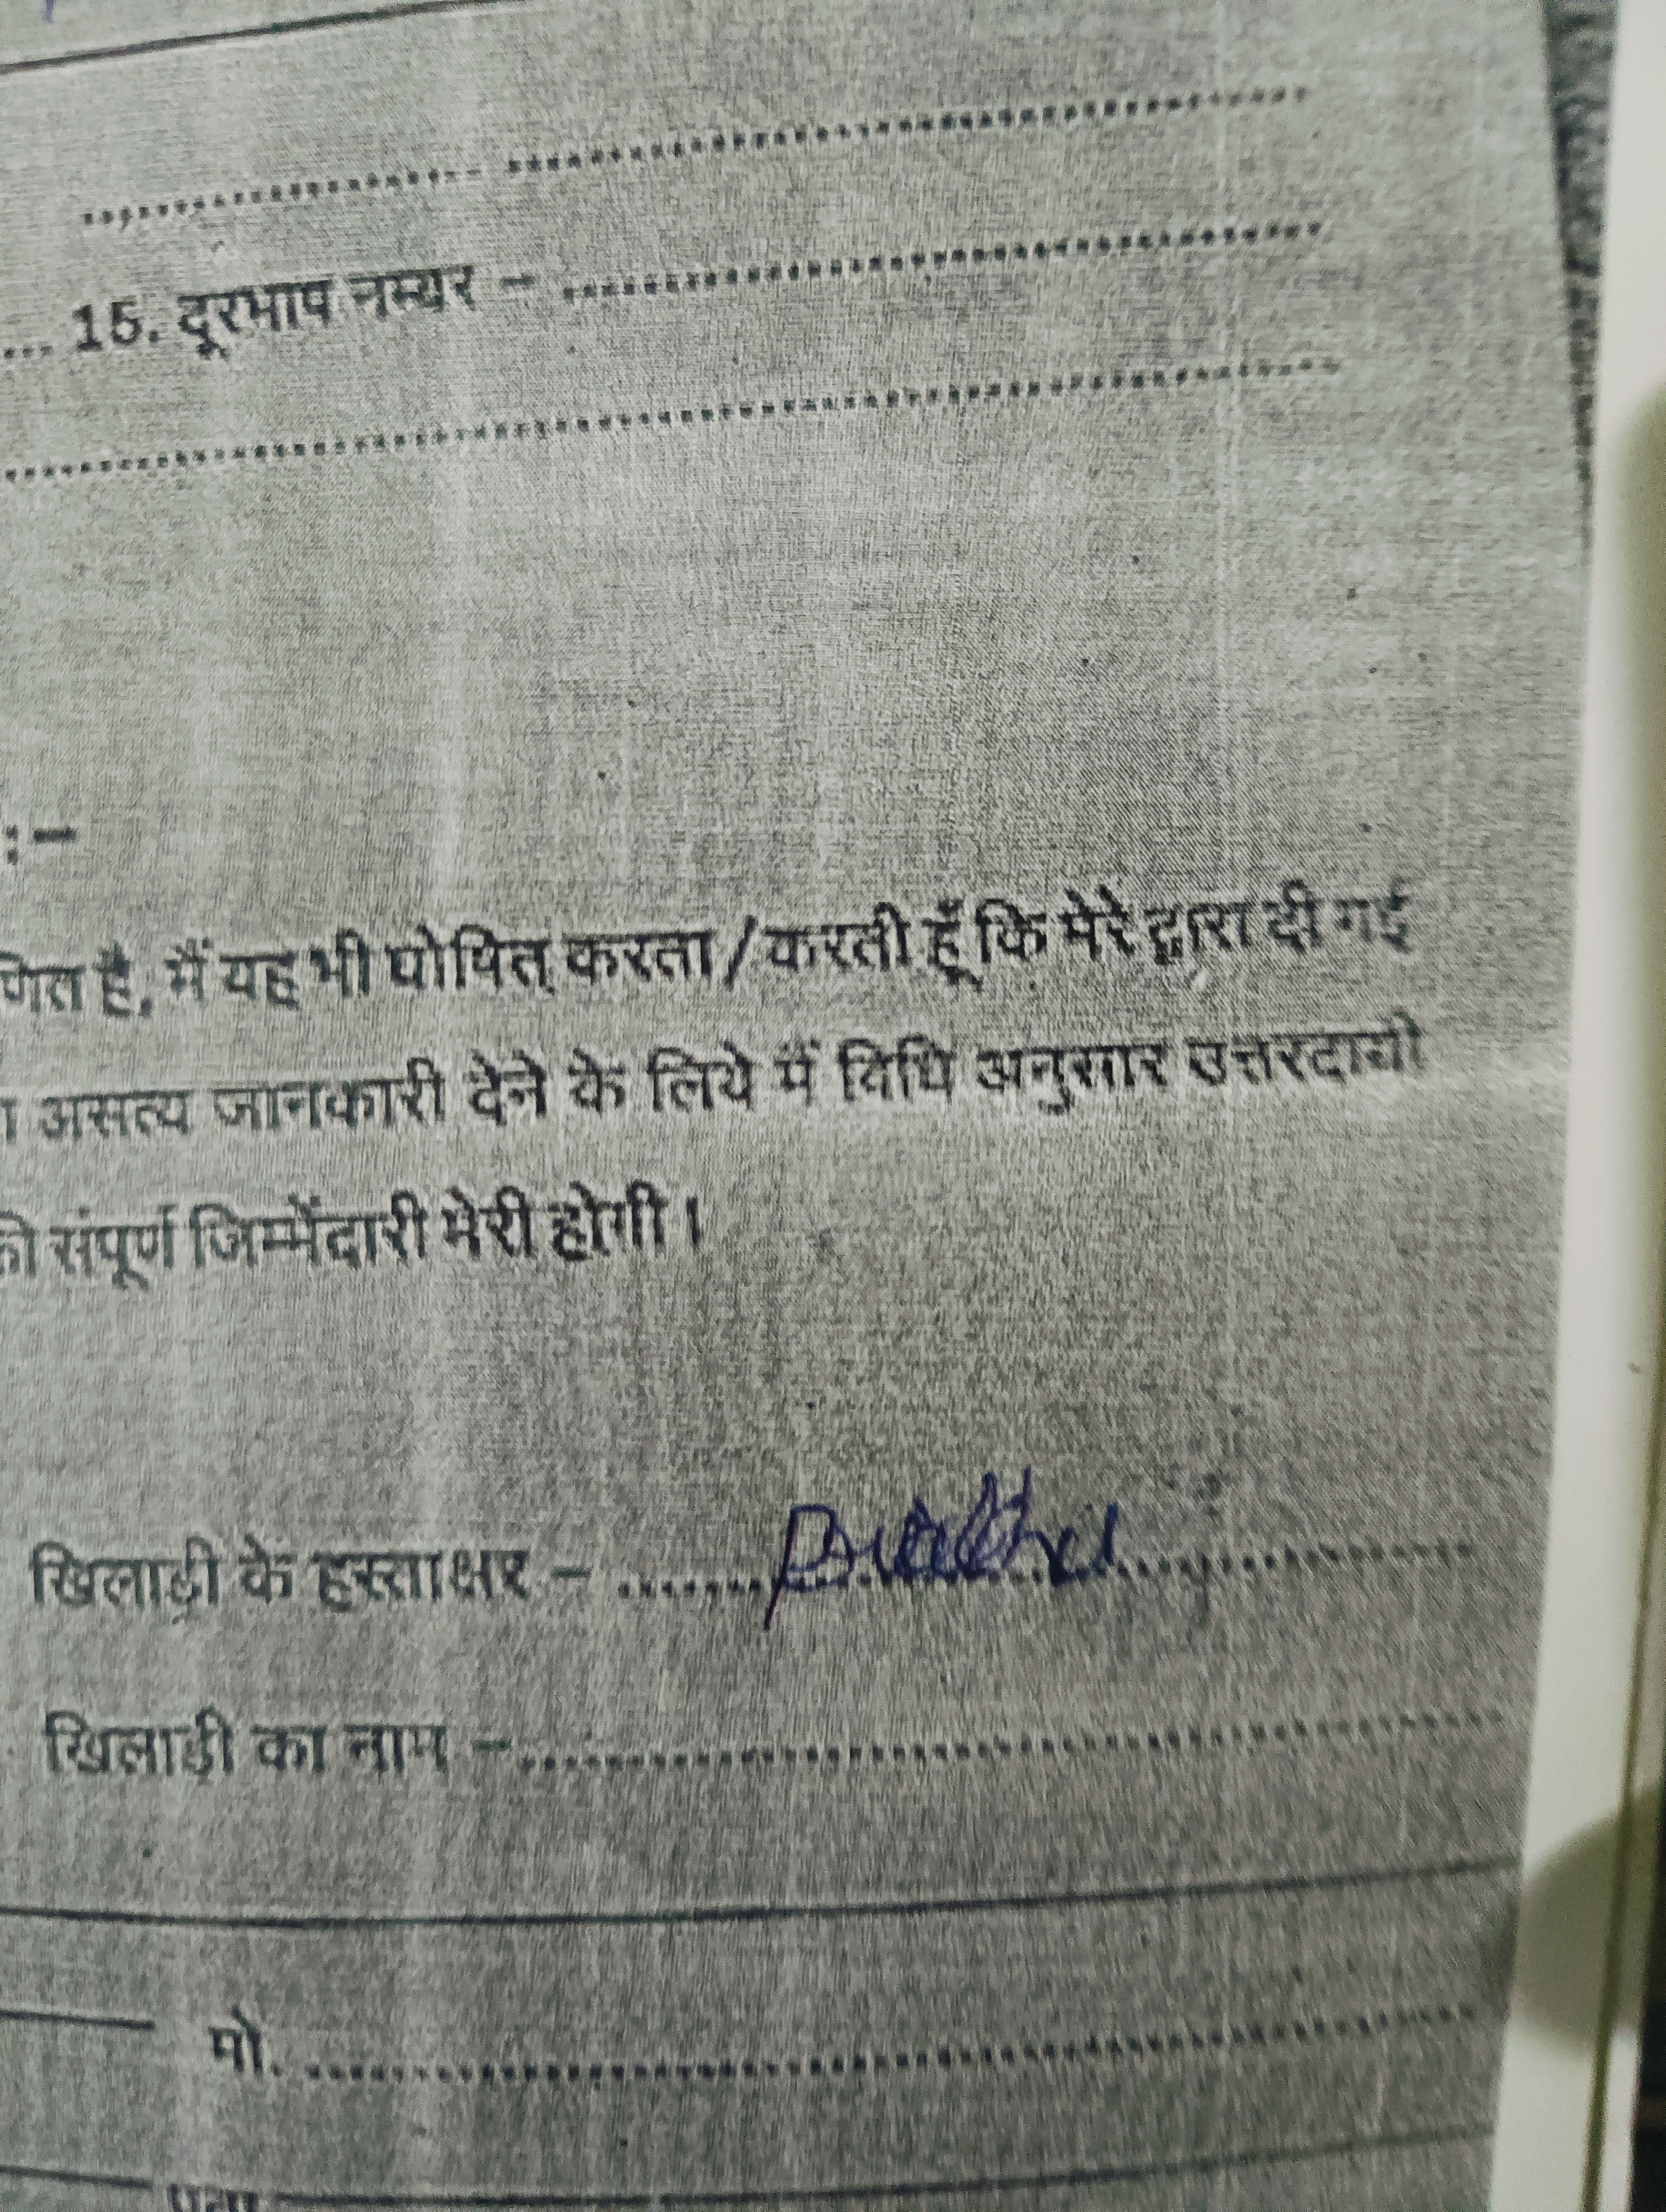 ... 15. दूरभाष नम्बर – ....................
:–
णित है, मैं यह भी घोषित करता/करती हूँ कि मेरे द्वारा दी गई
असत्य जानकारी देने के लिये में विधि अनुसार उत्तरदायी
की संपूर्ण जिम्मेंदारी मेरी होगी।
खिलाड़ी के हस्ताक्षर – ....................
खिलाड़ी का नाम – ....................
मो. ....................